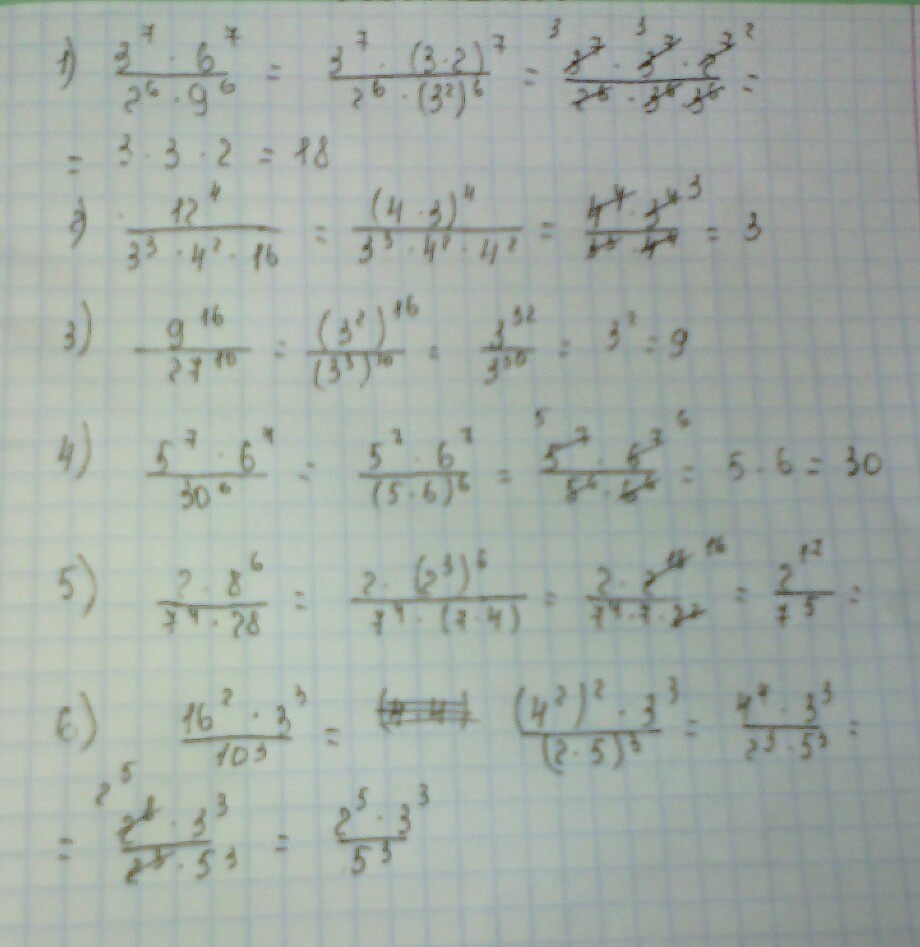 1) 3^7 · 6^7 / 2^6 · 9^6 = 3^7 · (3·2)^7 / 2^6 · (3^2)^6 = 3 3^7 · 3 3^7 · 2^7 2 / 2^6 · 3^6 3^6 =
= 3 · 3 · 2 = 18
2) 12^4 / 3^3 · 4^2 · 16 = (4 · 3)^4 / 3^3 · 4^2 · 4^2 = 4^4 · 3^4 3 / 3^3 · 4^4 = 3
3) 9^16 / 27^10 = (3^2)^16 / (3^3)^10 = 3^32 / 3^30 = 3^2 = 9
4) 5^7 · 6^7 / 30^6 = 5^7 · 6^7 / (5·6)^6 = 5 5^7 · 6^7 6 / 5^6 · 6^6 = 5 · 6 = 30
5) 2 · 8^6 / 7^4 · 28 = 2 · (2^3)^6 / 7^4 · (7·4) = 2 · 2^18 16 / 7^4 · 7 · 2^2 = 2^17 / 7^5 =
6) 16^2 · 3^3 / 10^3 = (4^2)^2 · 3^3 / (2·5)^3 = 4^4 · 3^3 / 2^3 · 5^3 =
= 2^5 2^8 · 3^3 / 2^3 · 5^3 = 2^5 · 3^3 / 5^3